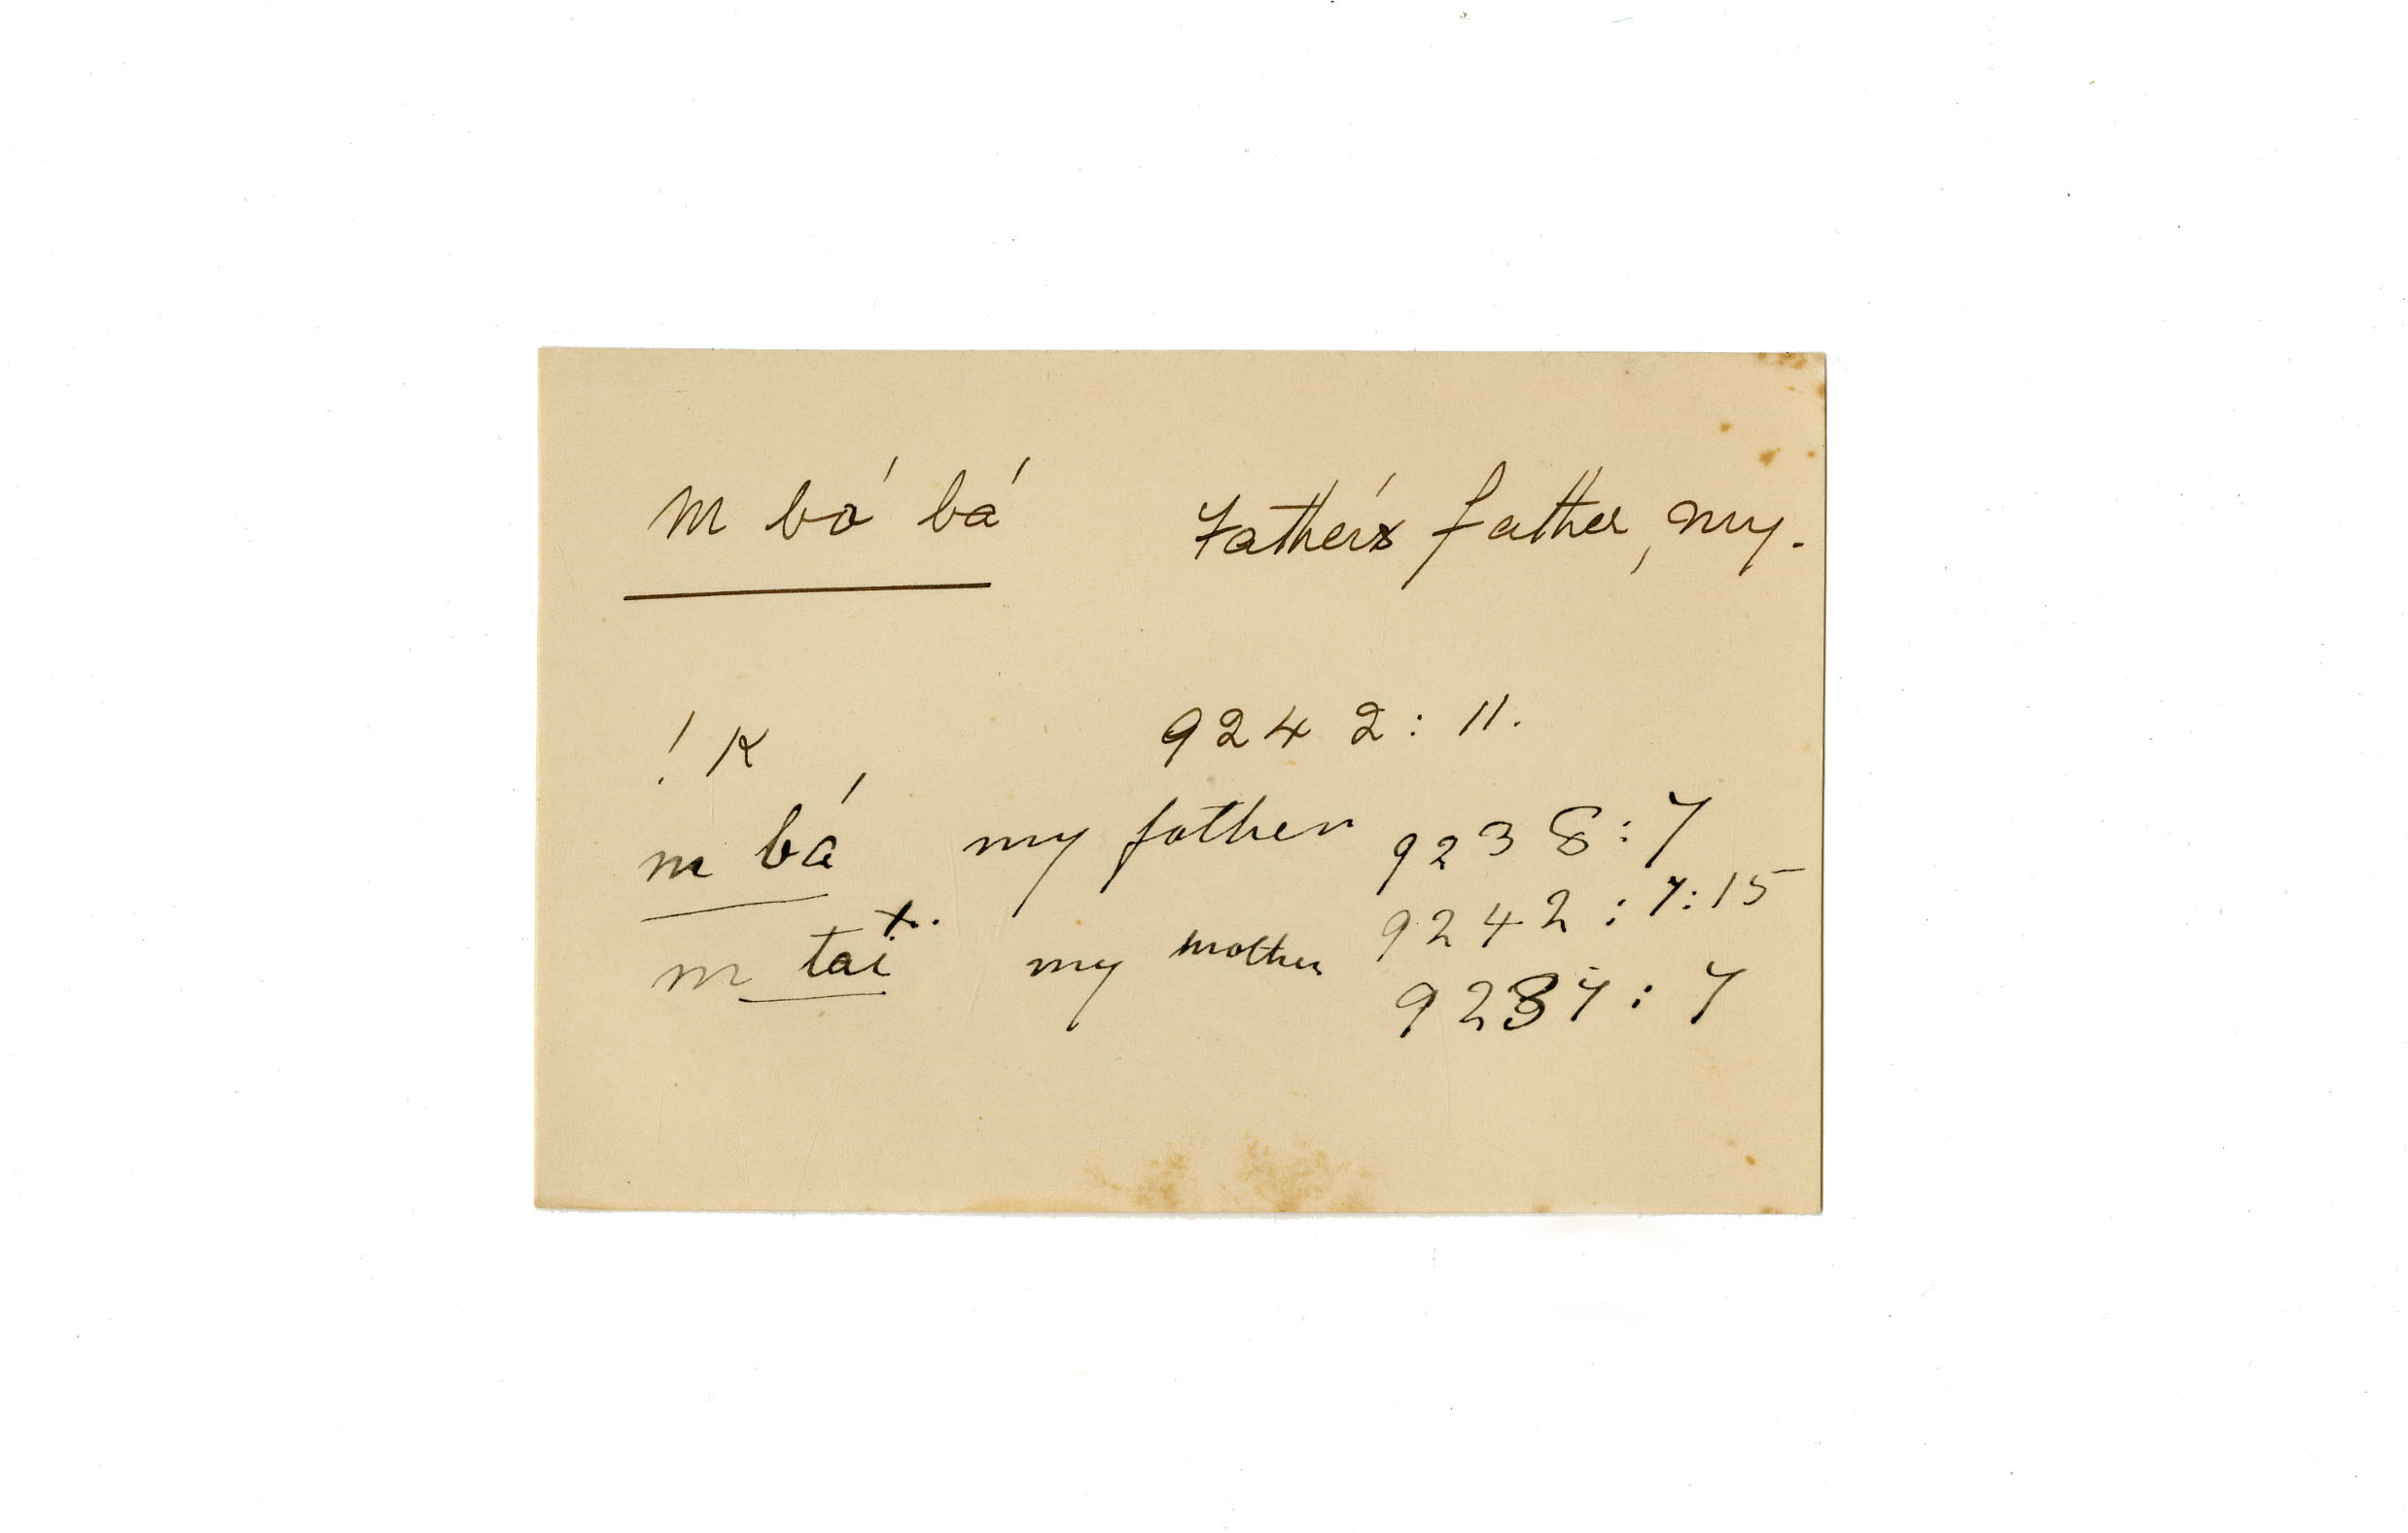 m bó bá Father's father, my.
! K 9242 : 11.
m bá my father 9238 : 7
9242 : 7 : 15
m taï my mother
9237 : 7